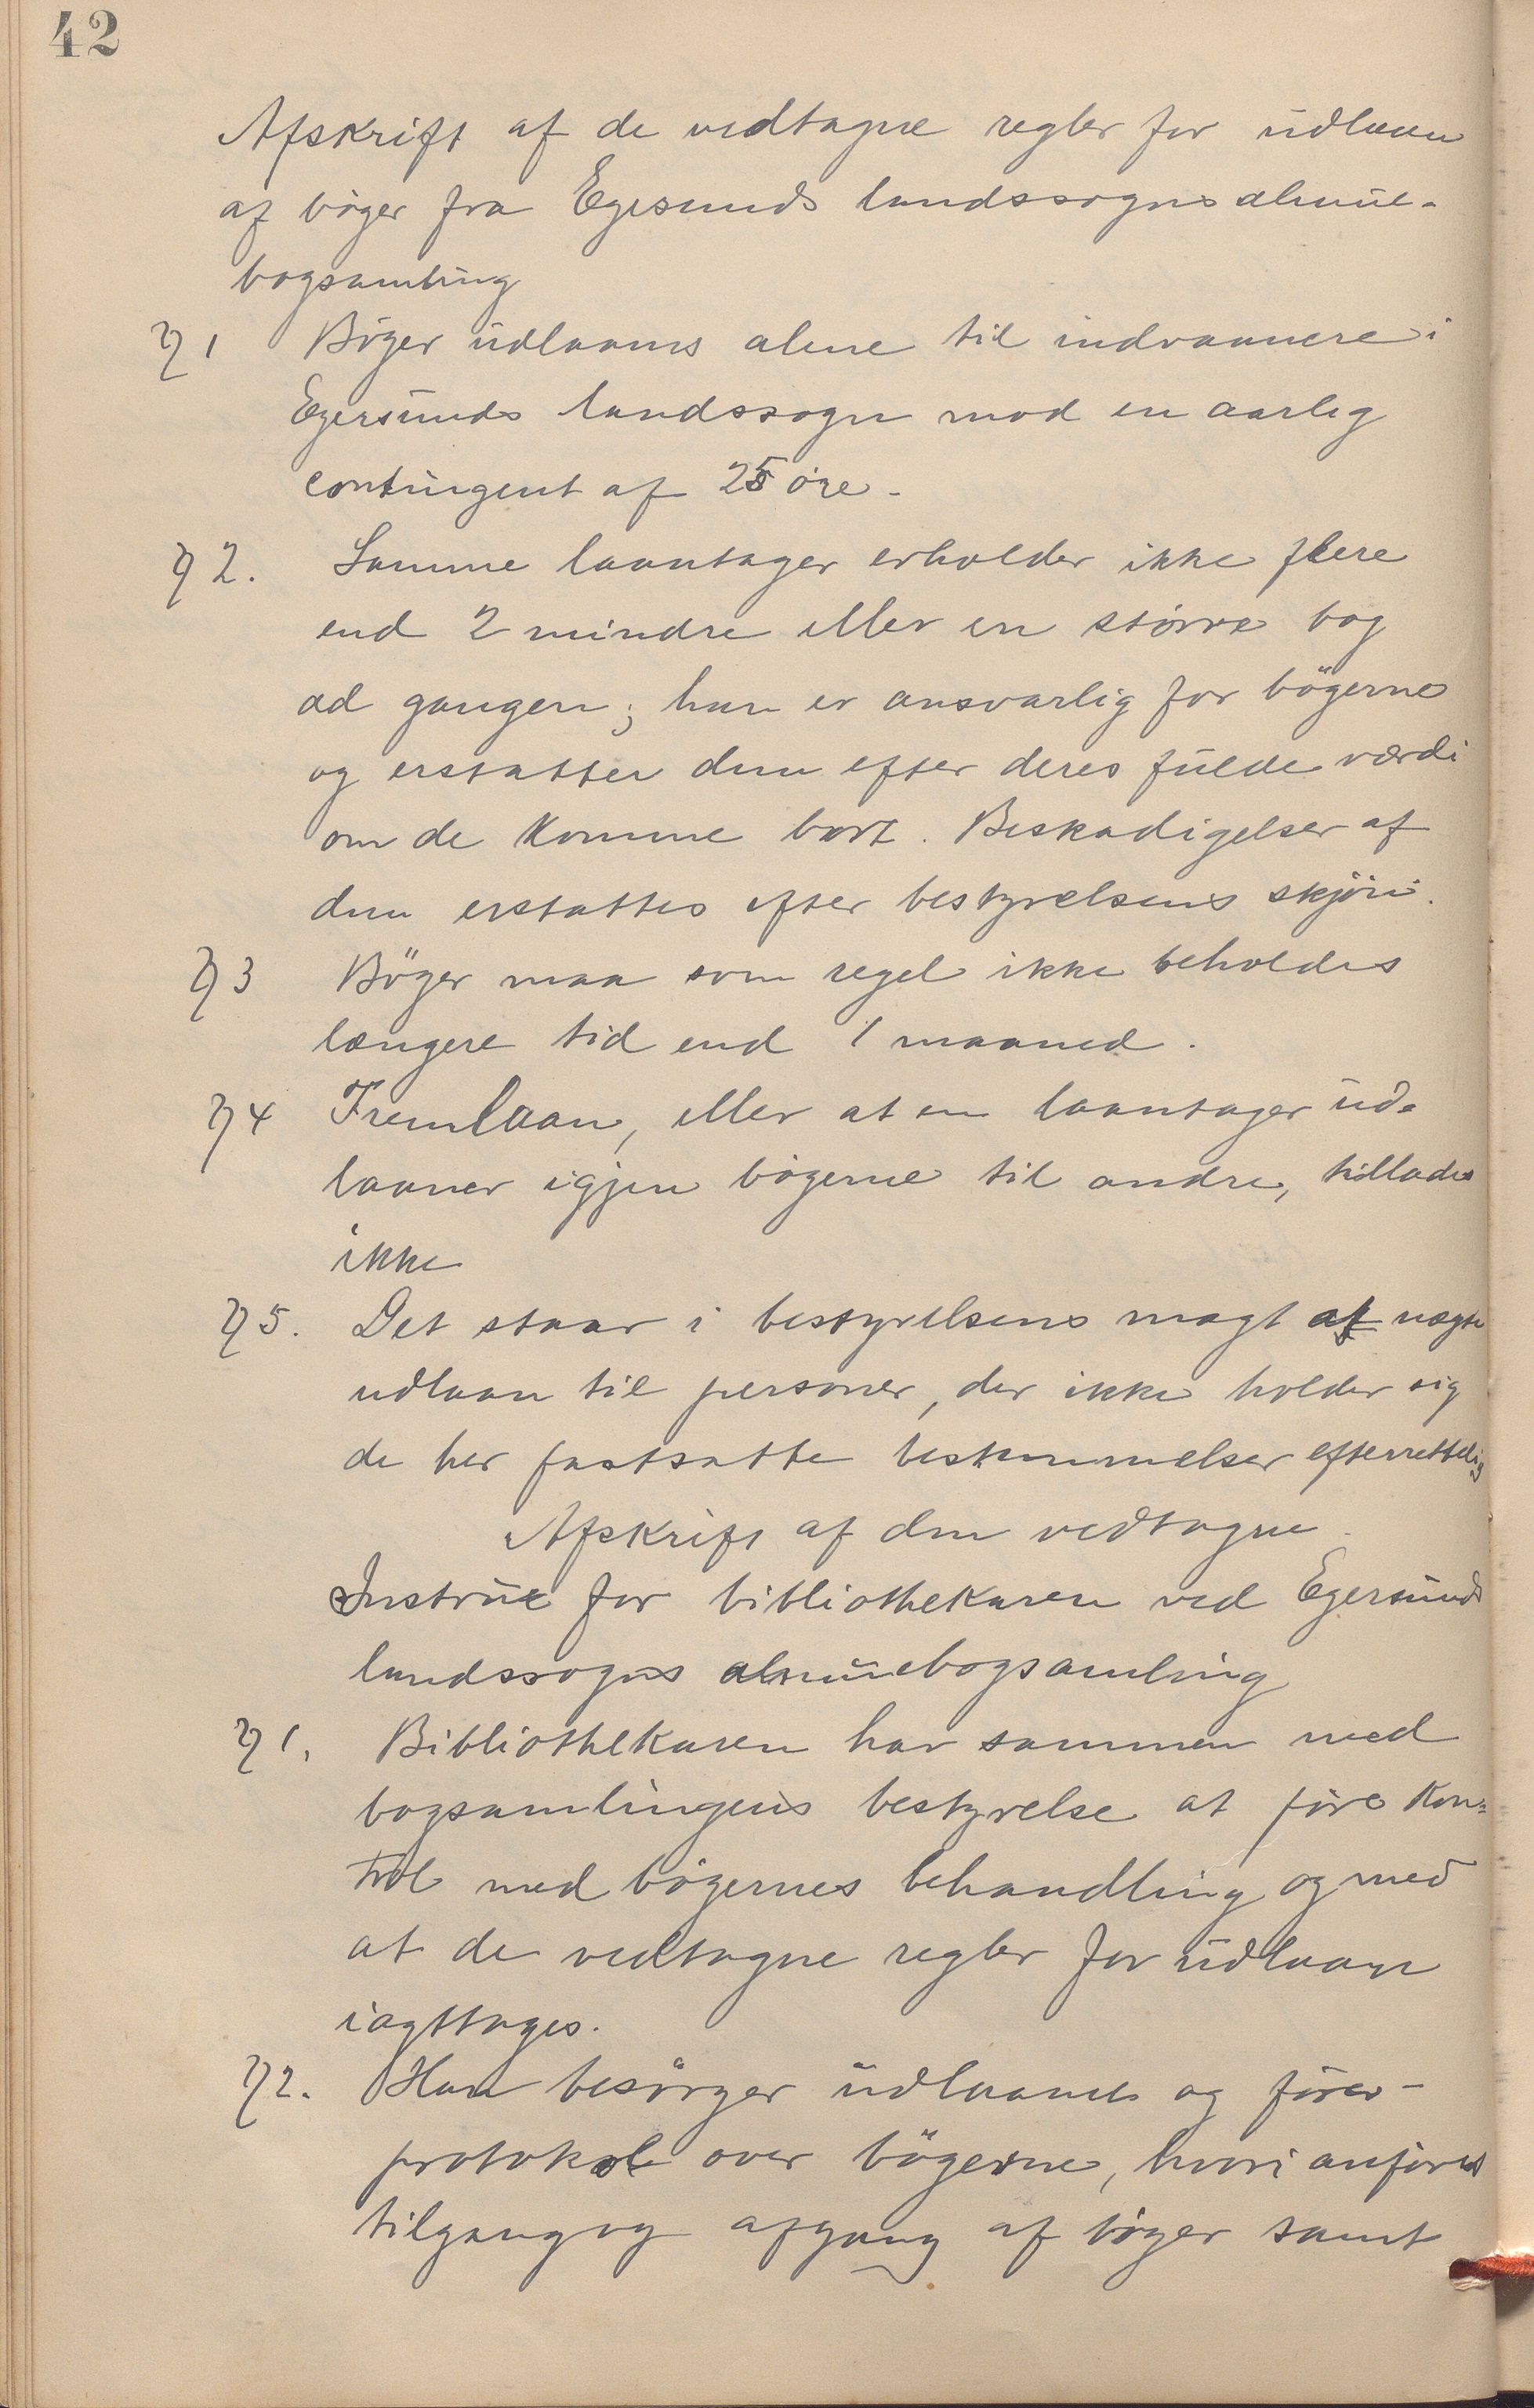 42
Afskrift af de vedtagne regler for udlaan
af bøger fra Egesunds landssogns almue-
bogsamling
§ 1 Bøger udlaanes alene til indvaanere i
Egersunds landssogn mod en aarlig
contingent af 25 øre.
§ 2. Samme laantager erholder ikke flere
end 2 mindre eller en større bog
ad gangen; han er ansvarlig for bögerne
og erstatter dem efter deres fulde værdi
om de komme bort. Beskadigelser af
dem erstattes efter bestyrelsens skjøn.
§ 3 Böger maa som regel ikke beholdes
længere tid end 1 maaned.
§ 4 Fremlaan, eller at en laantager ud-
laaner igjen bøgerne til andre, tillades
ikke
§ 5. Det staar i bestyrelsens magt at nægte
udlaan til personer, der ikke holder sig
de her fastsatte bestemmelser efterrettelig
Afskrift af den vedtagne
Instrux for bibliothekaren ved Egersunds
landssogns almuebogsamling
§ 1. Bibliothekaren har sammen med
bogsamlingens bestyrelse at føre kon=
trol med bøgernes behandling og med
at de vedtagne regler for udlaan
iagttages.
§ 2. Han besørger udlaanet og fører
protokol over bögerne, hvori anføres
tilgang og afgang af bøger samt